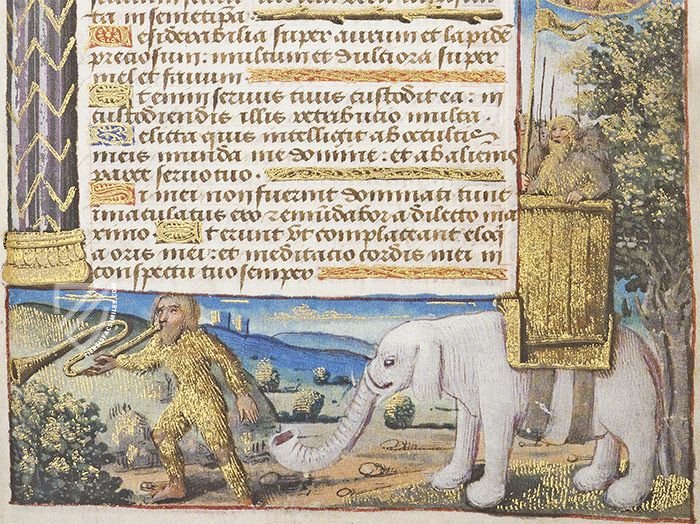 in semetipsa
Desiderabilia super aurum et lapidē
preciosum: multum et dulciora super
mel et fauum
Etenim seruus tuus custodit ea: in
custodiendis illis retribucio multa.
Delicta quis intelligit ab occultis
meis munda me domine: et ab alienis
parce seruo tuo
Si mei non fuerint dominati tunc
immaculatus ero et emūdabor a delicto ma
ximo Et erunt vt complaceant eloq̄
a oris mei: et meditacio cordis mei in
conspectu tuo semper